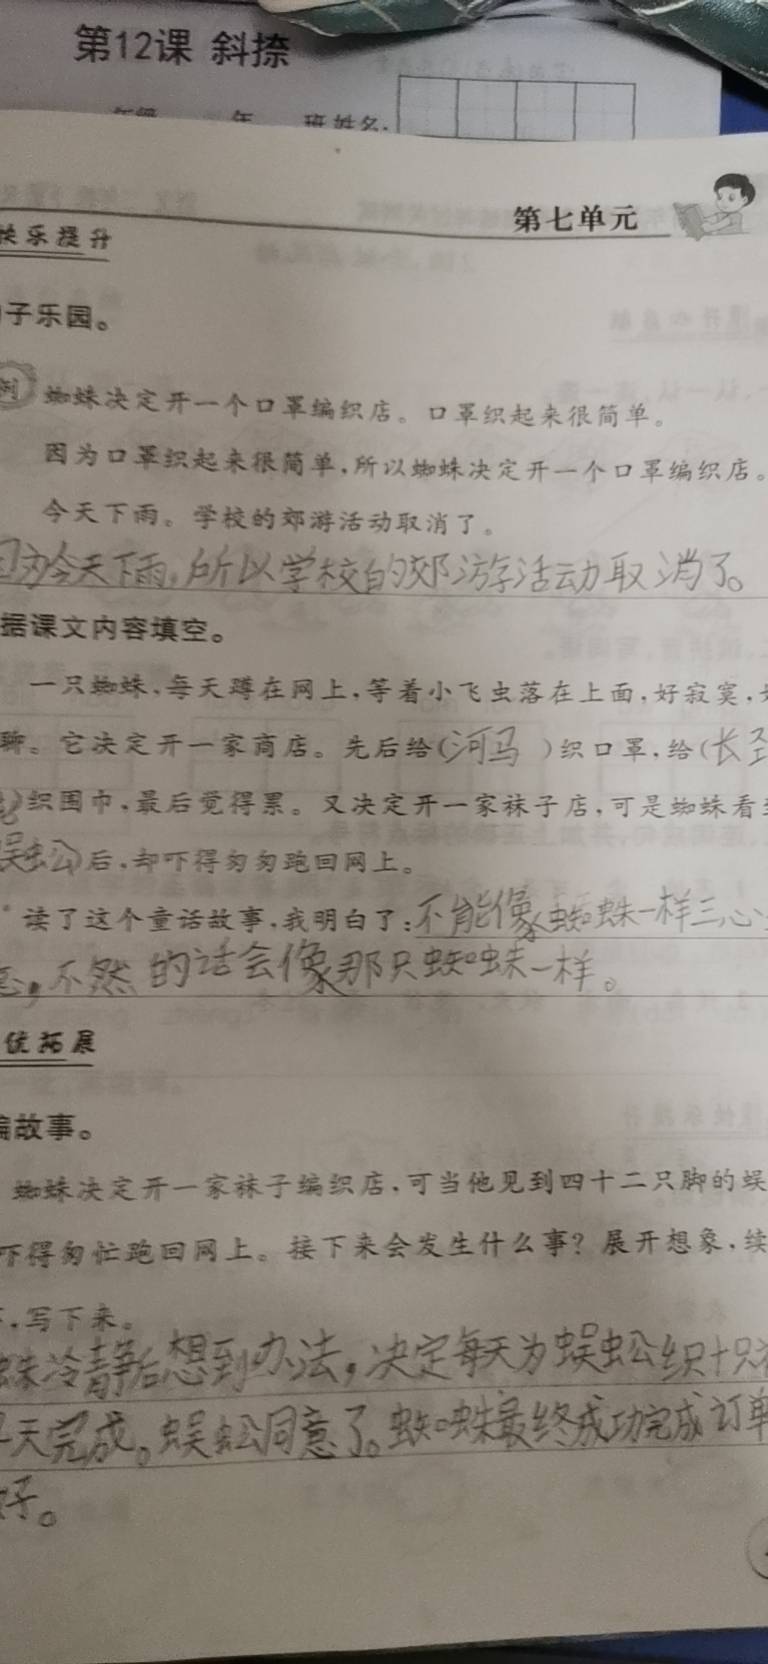 第12课 斜捺
年 班 姓名:
第七单元
快乐提升
子乐园。
例 蜘蛛决定开一个口罩编织店。口罩织起来很简单。
因为口罩织起来很简单,所以蜘蛛决定开一个口罩编织店。
今天下雨。学校的郊游活动取消了。
因为今天下雨,所以学校的郊游活动取消了。
据课文内容填空。
一只蜘蛛,每天蹲在网上,等着小飞虫落在上面,好寂寞,
聊。它决定开一家商店。先后给(河马 )织口罩,给(长颈
)织围巾,最后觉得累。又决定开一家袜子店,可是蜘蛛看
蜈蚣)后,却吓得匆匆跑回网上。
读了这个童话故事,我明白了:不能像蜘蛛一样三心
意,不然的话会像那只蜘蛛一样。
优拓展
编故事。
蜘蛛决定开一家袜子编织店,可当他见到四十二只脚的蜈
吓得匆忙跑回网上。接下来会发生什么事?展开想象,续
,写下来。
蛛冷静后想到办法,决定每天为蜈蚣织十只
天完成。蜈蚣同意了。蜘蛛最终成功完成订单
好。